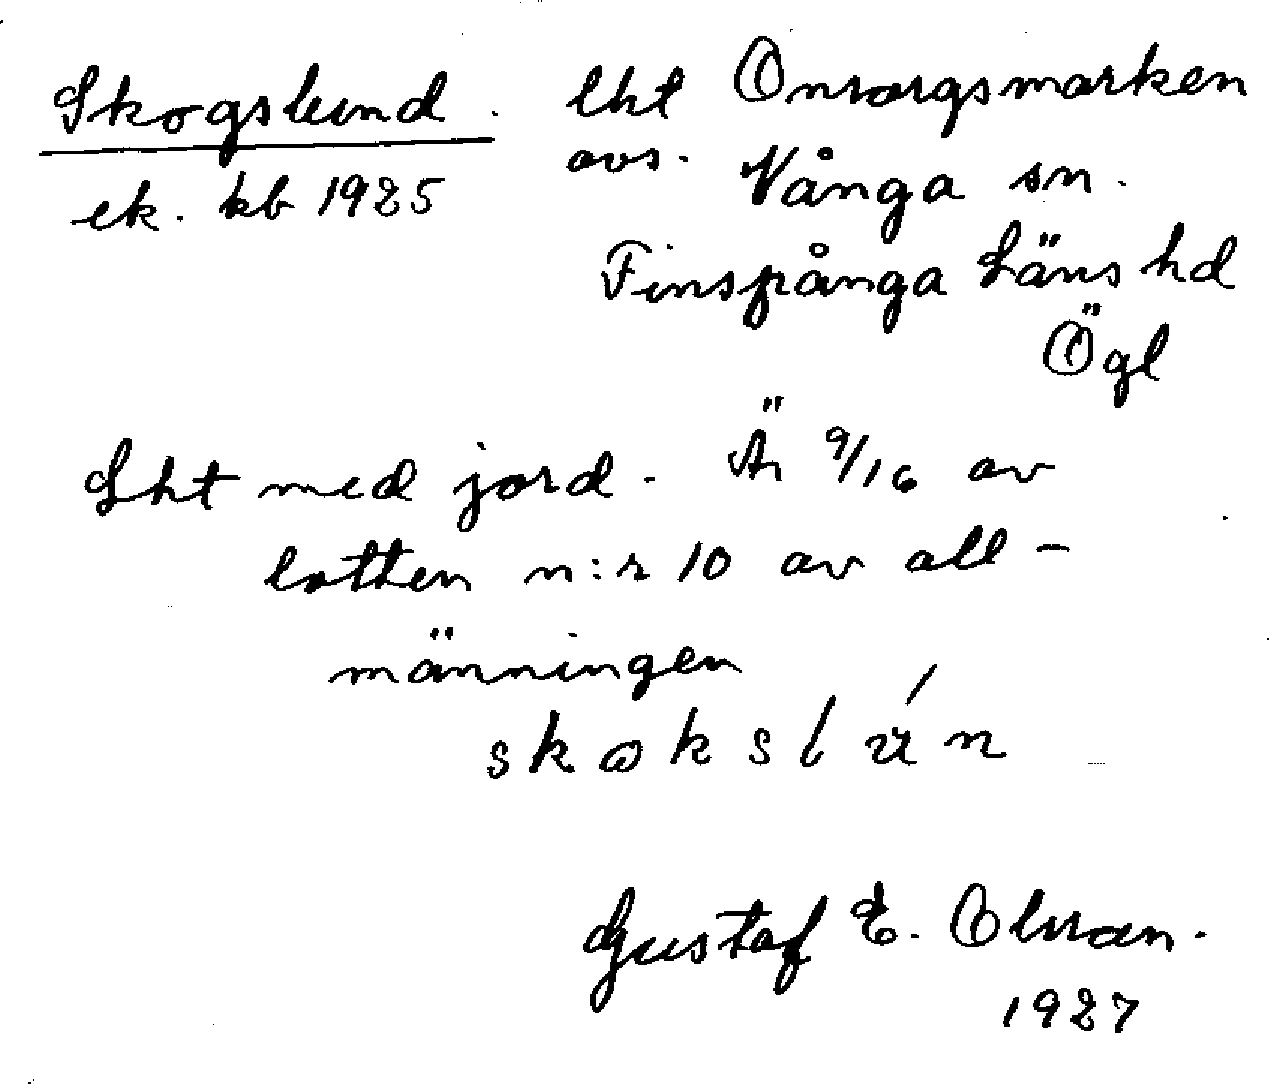 Skogslund. lht Onsorgsmarken
ek. kb 1925 avs. Vånga sn.
Finspånga Läns hd
Ögl
Lht med jord. Är 9/16 av
lotten n:r 10 av all-
männingen
skokslún
Gustaf E. Olsson.
1927